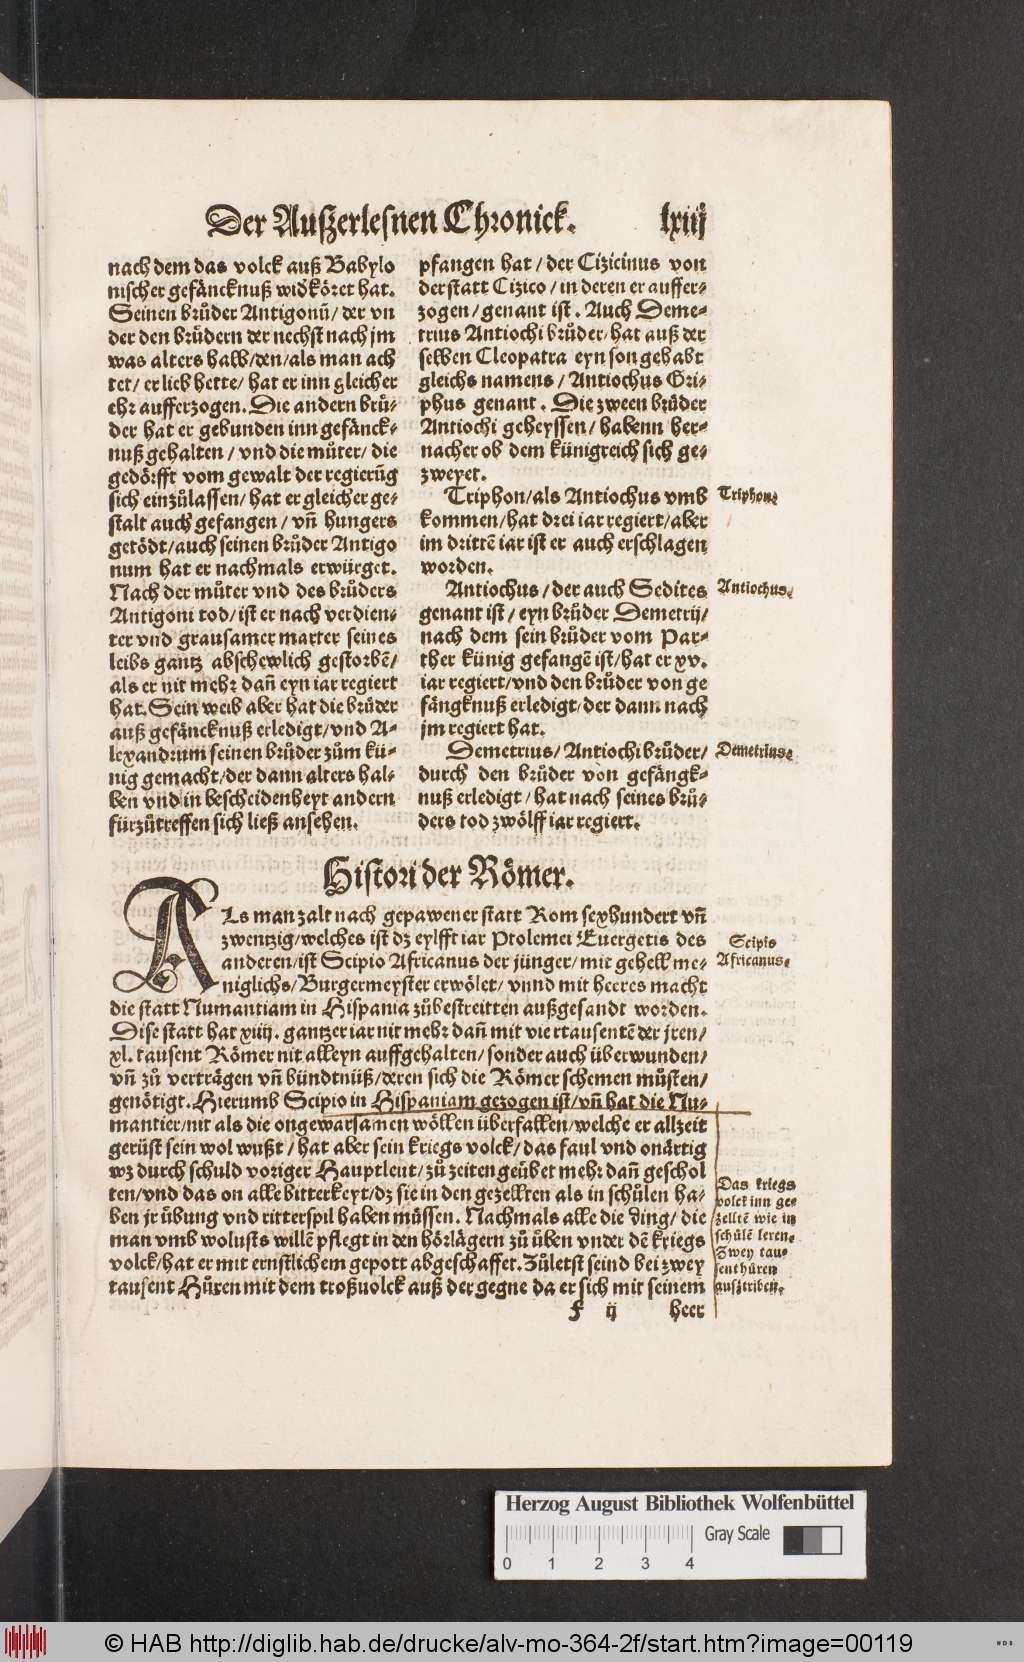 Der Auszerlesnen Chronick. lxiij
nach dem das volck auß Babylo
nischer gefäncknuß widkōret hat.
Seinen brůder Antigonū/ der vn
der den brůdern der nechst nach jm
was alters halb/den/als man ach
tet/ er lieb hette/ hat er inn gleicher
ehr aufferzogen. Die andern brů-
der hat er gebunden inn gefänck-
nuß gehalten / vnd die můter/ die
gedörfft vom gewalt der regierūg
sich einzůlassen/ hat er gleicher ge-
stalt auch gefangen / vñ hungers
getödt/auch seinen brůder Antigo
num hat er nachmals erwürget.
Nach der můter vnd des brůders
Antigoni tod/ ist er nach verdien-
ter vnd grausamer marter seines
leibs gantz abschewlich gestorbē/
als er nit mehr dañ eyn iar regiert
hat. Sein weib aber hat die brůder
auß gefäncknuß erledigt/ vnd A-
lexandrum seinen brůder zům kü-
nig gemacht/der dann alters hal-
ben vnd in bescheidenheyt andern
fürzůtreffen sich ließ ansehen.
pfangen hat / der Cizicinus von
der statt Cizico / in deren er auffer-
zogen / genant ist. Auch Deme-
trius Antiochi brůder/ hat auß der
selben Cleopatra eyn son gehabt
gleichs namens / Antiochus Gri-
phus genant. Die zween brůder
Antiochi geheyssen/ habenn her-
nacher ob dem künigreich sich ge-
zweyet.
Triphon/als Antiochus vmb
kommen/hat drei iar regiert/aber
im drittē iar ist er auch erschlagen
worden.
Antiochus/ der auch Sedites
genant ist / eyn brůder Demetrij/
nach dem sein brůder vom Par-
ther künig gefangē ist/ hat er xv.
iar regiert/vnd den brůder von ge
fängknuß erledigt/ der dann nach
jm regiert hat.
Demetrius/ Antiochi brůder/
durch den brůder von gefängk-
nuß erledigt / hat nach seines brů-
ders tod zwölff iar regiert.
Triphon.
Antiochus.
Demetrius.
Histori der Römer.
ALs man zalt nach gepawener statt Rom sexhundert vñ
zwentzig/welches ist dz eylfft iar Ptolemei Euergetis des
anderen/ist Scipio Africanus der jünger/ mit gehell me-
niglichs/ Burgermeyster erwölet/ vnnd mit heeres macht
die statt Numantiam in Hispania zůbestreitten außgesandt worden.
Dise statt hat xiiij. gantzer iar nit mehr dañ mit viertausentē der jren/
xl. tausent Römer nit alleyn auffgehalten/ sonder auch überwunden/
vñ zů verträgen vñ bündtnüß/deren sich die Römer schemen můsten/
genötigt. Hierumb Scipio in Hispaniam gezogen ist/ vñ hat die Nu-
mantier/nit als die ongewarsamen wöllen überfallen/welche er allzeit
gerüst sein wol wußt / hat aber sein kriegs volck/ das faul vnd onärtig
wz durch schuld voriger Hauptleut/ zů zeiten geübet mehr dañ geschol
ten/vnd das on alle bitterkeyt/dz sie in den gezellten als in schůlen ha-
ben jr übung vnd ritterspil haben müssen. Nachmals alle die ding/ die
man vmb wolusts willē pflegt in den hörlägern zů üben vnder dē kriegs
volck/hat er mit ernstlichem gepott abgeschaffet. Zůletst seind bei zwey
tausent Hůren mit dem troßuolck auß der gegne da er sich mit seinem
Scipio
Africanus.
Das kriegs
volck inn ge-
zelltē wie in
schůlē leren.
Zwey tau-
sent hůren
ausztriben.
f ij heer
Herzog August Bibliothek Wolfenbüttel
Gray Scale
0 1 2 3 4
© HAB http://diglib.hab.de/drucke/alv-mo-364-2f/start.htm?image=00119